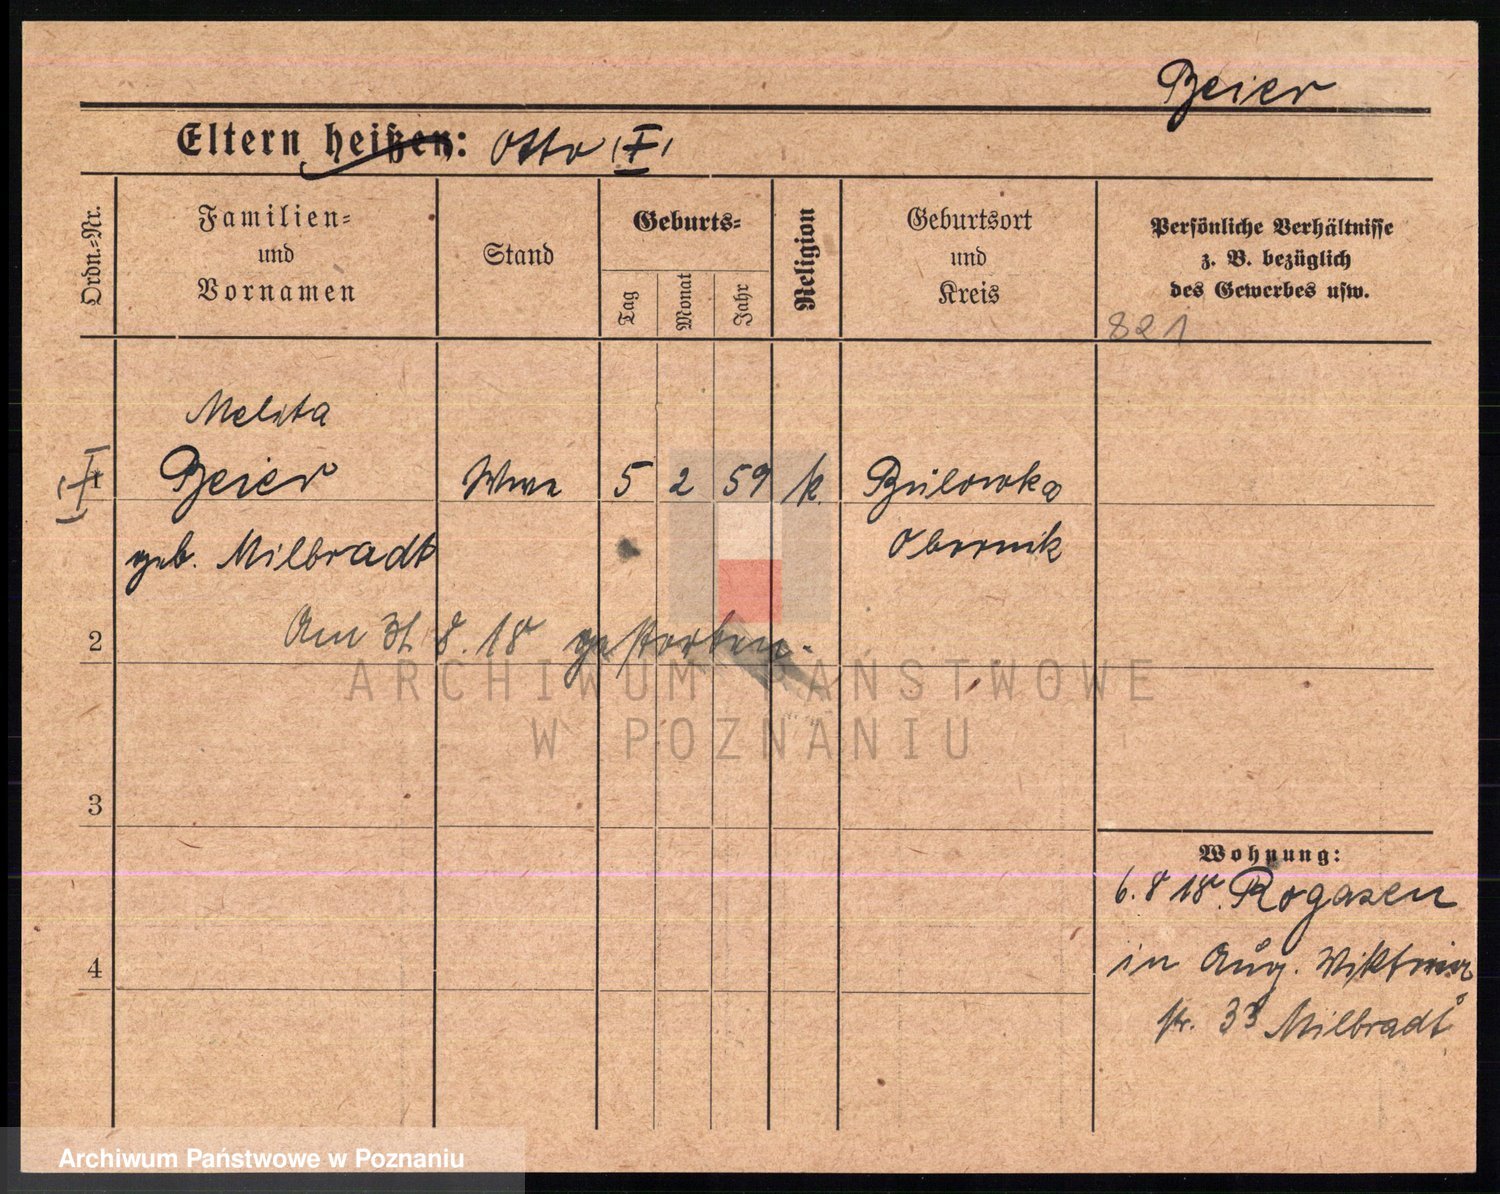 Beier
Eltern heißen: Otto (†)
Ordn.-Nr.
Familien-
und
Vornamen
Stand
Geburts-
Tag
Monat
Jahr
Religion
Geburtsort
und
Kreis
Persönliche Verhältnisse
z. B. bezüglich
des Gewerbes usw.
821
Melita
Beier Wwe 5 2 59 k.
geb. Milbradt Obornik
2 Am 31. 8. 18 gestorben.
ARCHIWUM PAŃSTWOWE
W POZNANIU
3
Wohnung:
6. 8 18. Rogasen
4 in Aug. Viktoria
str. 33 Milbradt
Archiwum Państwowe w Poznaniu